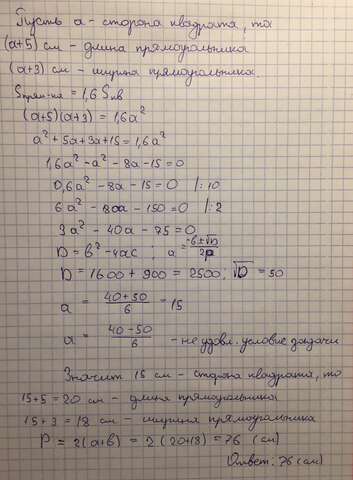 Пусть a - сторона квадрата, то
(a+5) см - длина прямоугольника
(a+3) см - ширина прямоугольника.
Sпрям-ка = 1,6 Sкв
(a+5)(a+3) = 1,6a²
a² + 5a + 3a + 15 = 1,6a²
1,6a² - a² - 8a - 15 = 0
0,6a² - 8a - 15 = 0 /·10
6a² - 80a - 150 = 0 /:2
3a² - 40a - 75 = 0
D = b² - 4ac ; a = (-b ± √D)/2a
D = 1600 + 900 = 2500; √D = 50
a = (40+50)/6 = 15
a = (40-50)/6 - не удовл. условие задачи
Значит 15 см - сторона квадрата, то
15+5 = 20 см - длина прямоугольника
15+3 = 18 см - ширина прямоугольника
P = 2(a+b) = 2(20+18) = 76 (см)
Ответ: 76 (см)